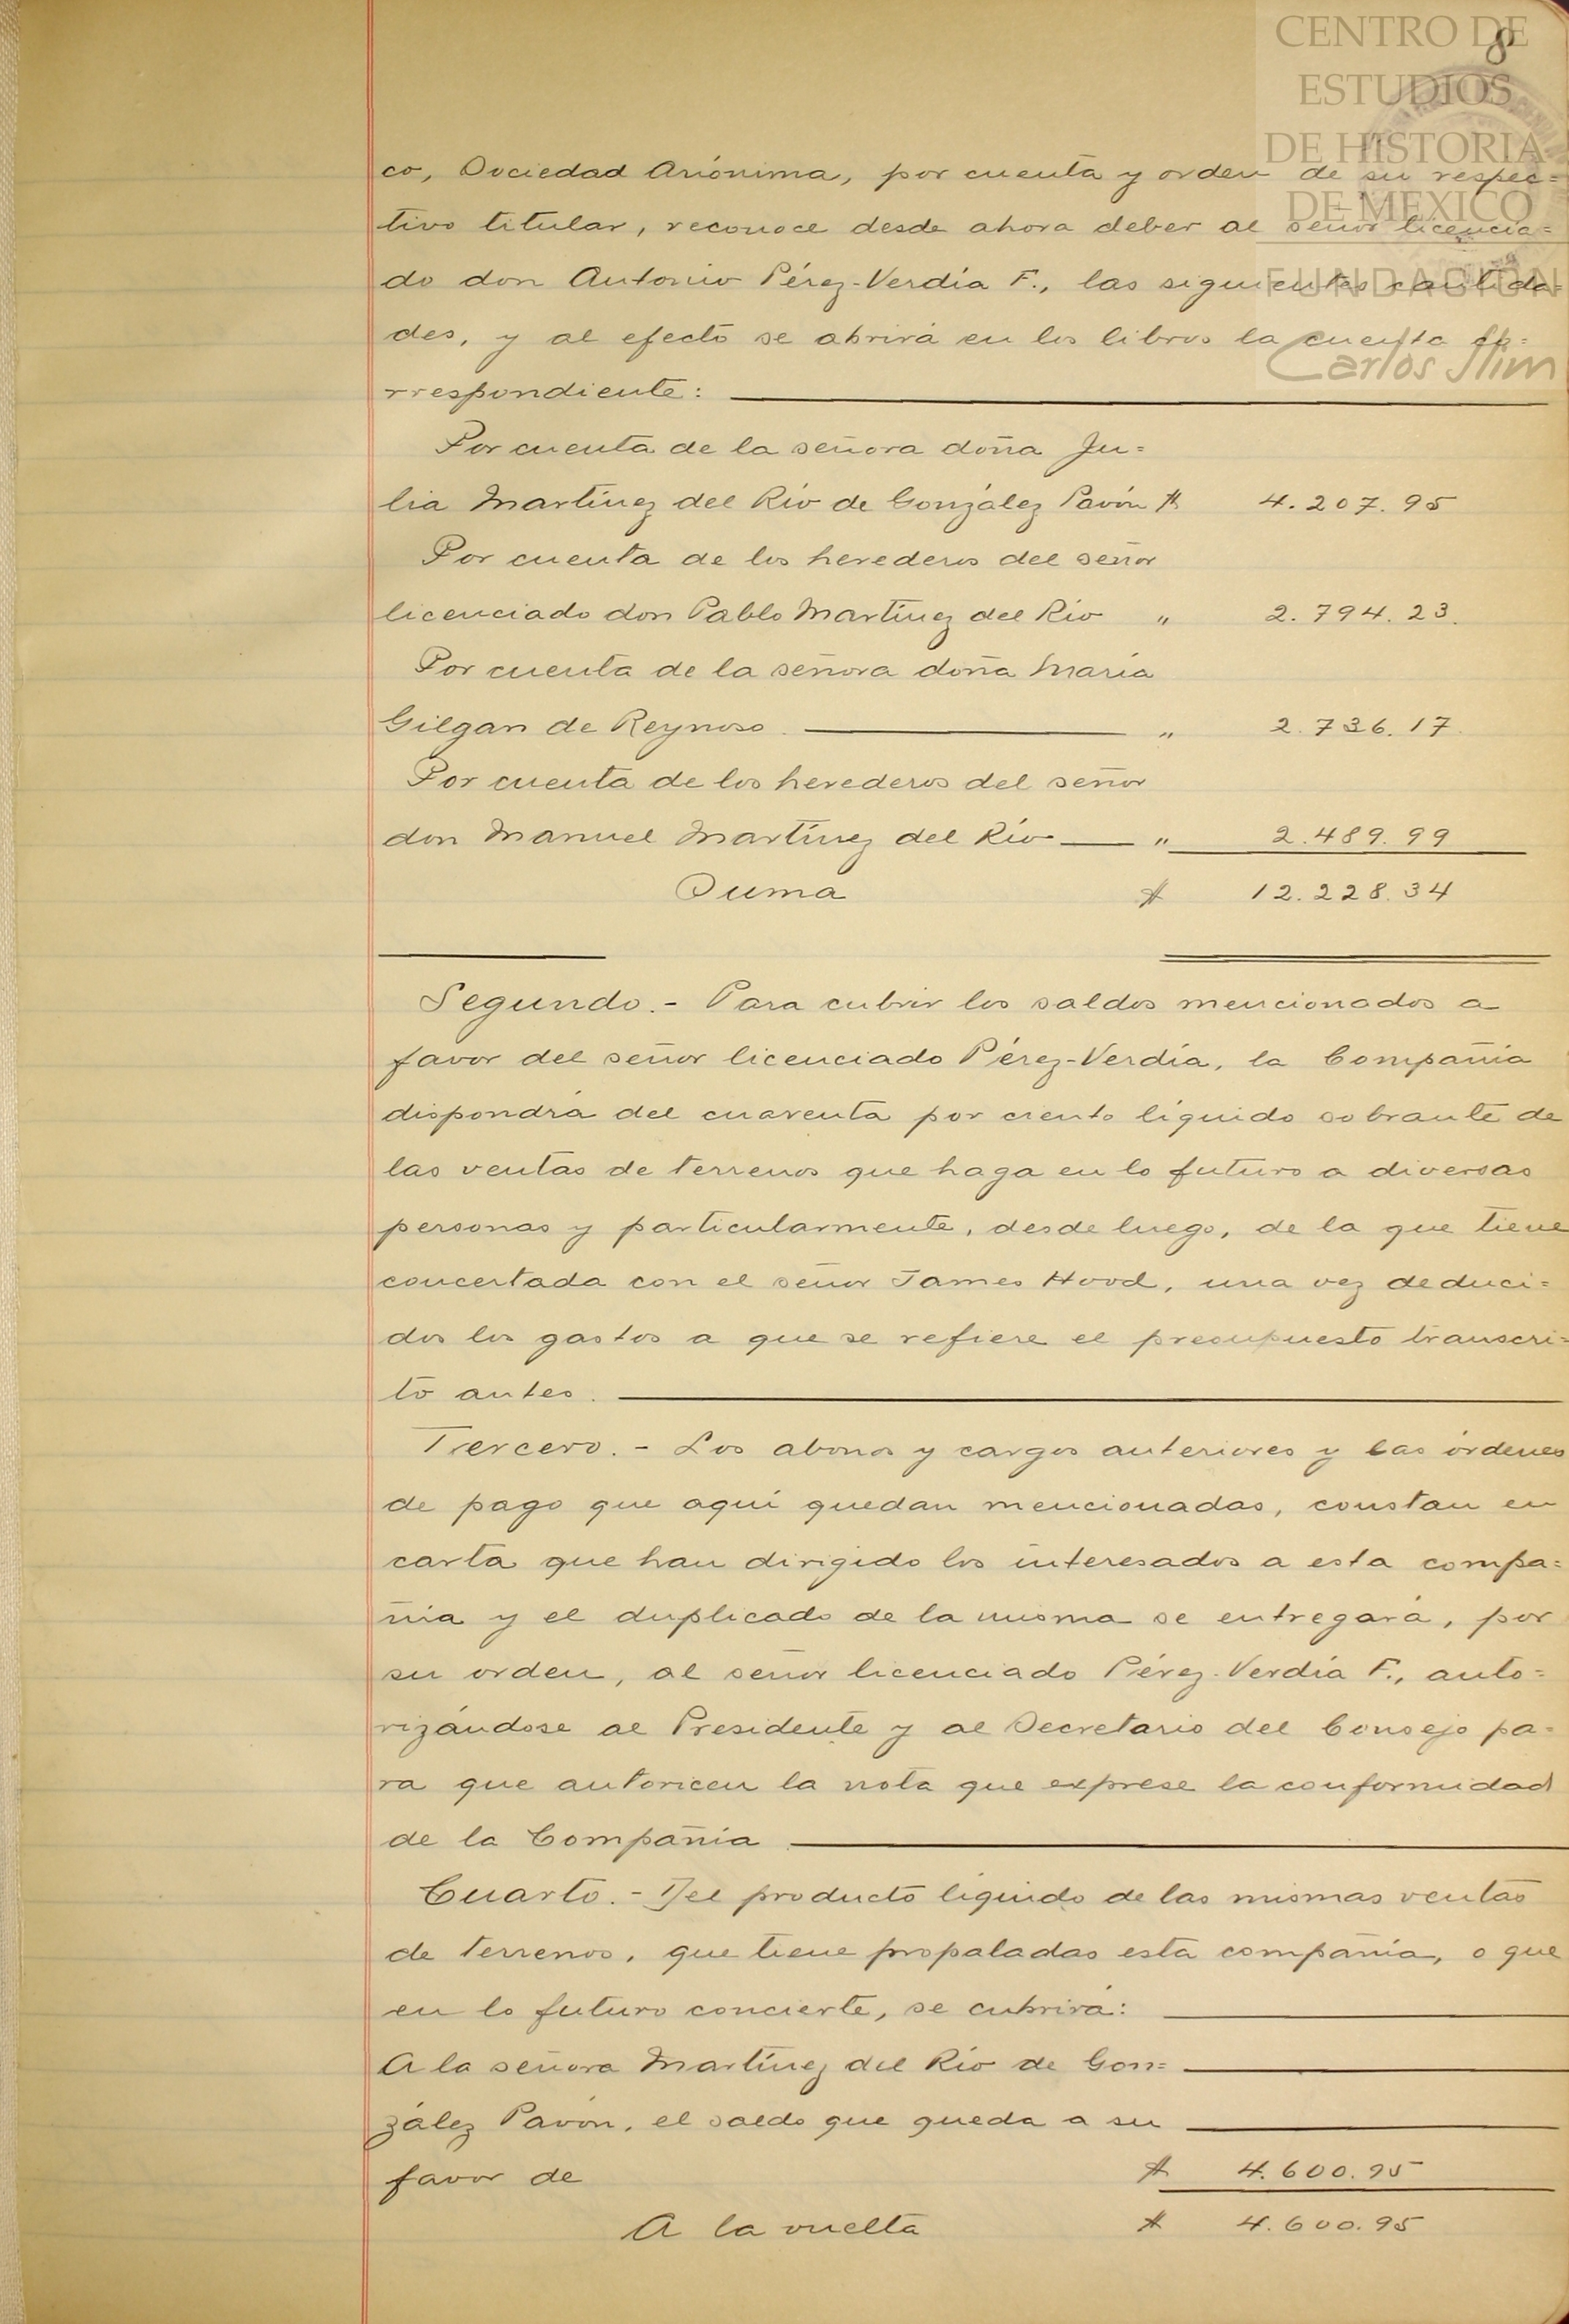 CENTRO DE
ESTUDIOS
DE HISTORIA
DE MEXICO
FUNDACION
Carlos Slim
8
co, Sociedad Anónima, por cuenta y orden de su respec=
tivo titular, reconoce desde ahora deber al señor licencia=
do don Antonio Pérez-Verdía F., las siguientes cantida=
des, y al efecto se abrirá en los libros la cuenta co=
rrespondiente:
Por cuenta de la señora doña Ju=
lia Martínez del Río de González Pavón $ 4.207.95
Por cuenta de los herederos del señor
licenciado don Pablo Martínez del Río " 2.794.23.
Por cuenta de la señora doña María
Gilgan de Reynoso. " 2.736.17.
Por cuenta de los herederos del señor
don Manuel Martínez del Río " 2.489.99
Suma $ 12.228.34
Segundo.- Para cubrir los saldos mencionados a
favor del señor licenciado Pérez-Verdía, la Compañía
dispondrá del cuarenta por ciento líquido sobrante de
las ventas de terrenos que haga en lo futuro a diversas
personas y particularmente, desde luego, de la que tiene
concertada con el señor James Hood, una vez deduci=
dos los gastos a que se refiere el presupuesto transcri=
to antes.
Tercero.- Los abonos y cargos anteriores y las órdenes
de pago que aquí quedan mencionadas, constan en
carta que han dirigido los interesados a esta compa=
ñía y el duplicado de la misma se entregará, por
su orden, al señor licenciado Pérez-Verdía F., auto=
rizándose al Presidente y al Secretario del Consejo pa=
ra que autoricen la nota que exprese la conformidad
de la Compañía.
Cuarto.- Del producto líquido de las mismas ventas
de terrenos, que tiene propaladas esta compañía, o que
en lo futuro concierte, se cubrirá:
A la señora Martínez del Río de Gon=
zález Pavón, el saldo que queda a su
favor de $ 4.600.95
A la vuelta $ 4.600.95